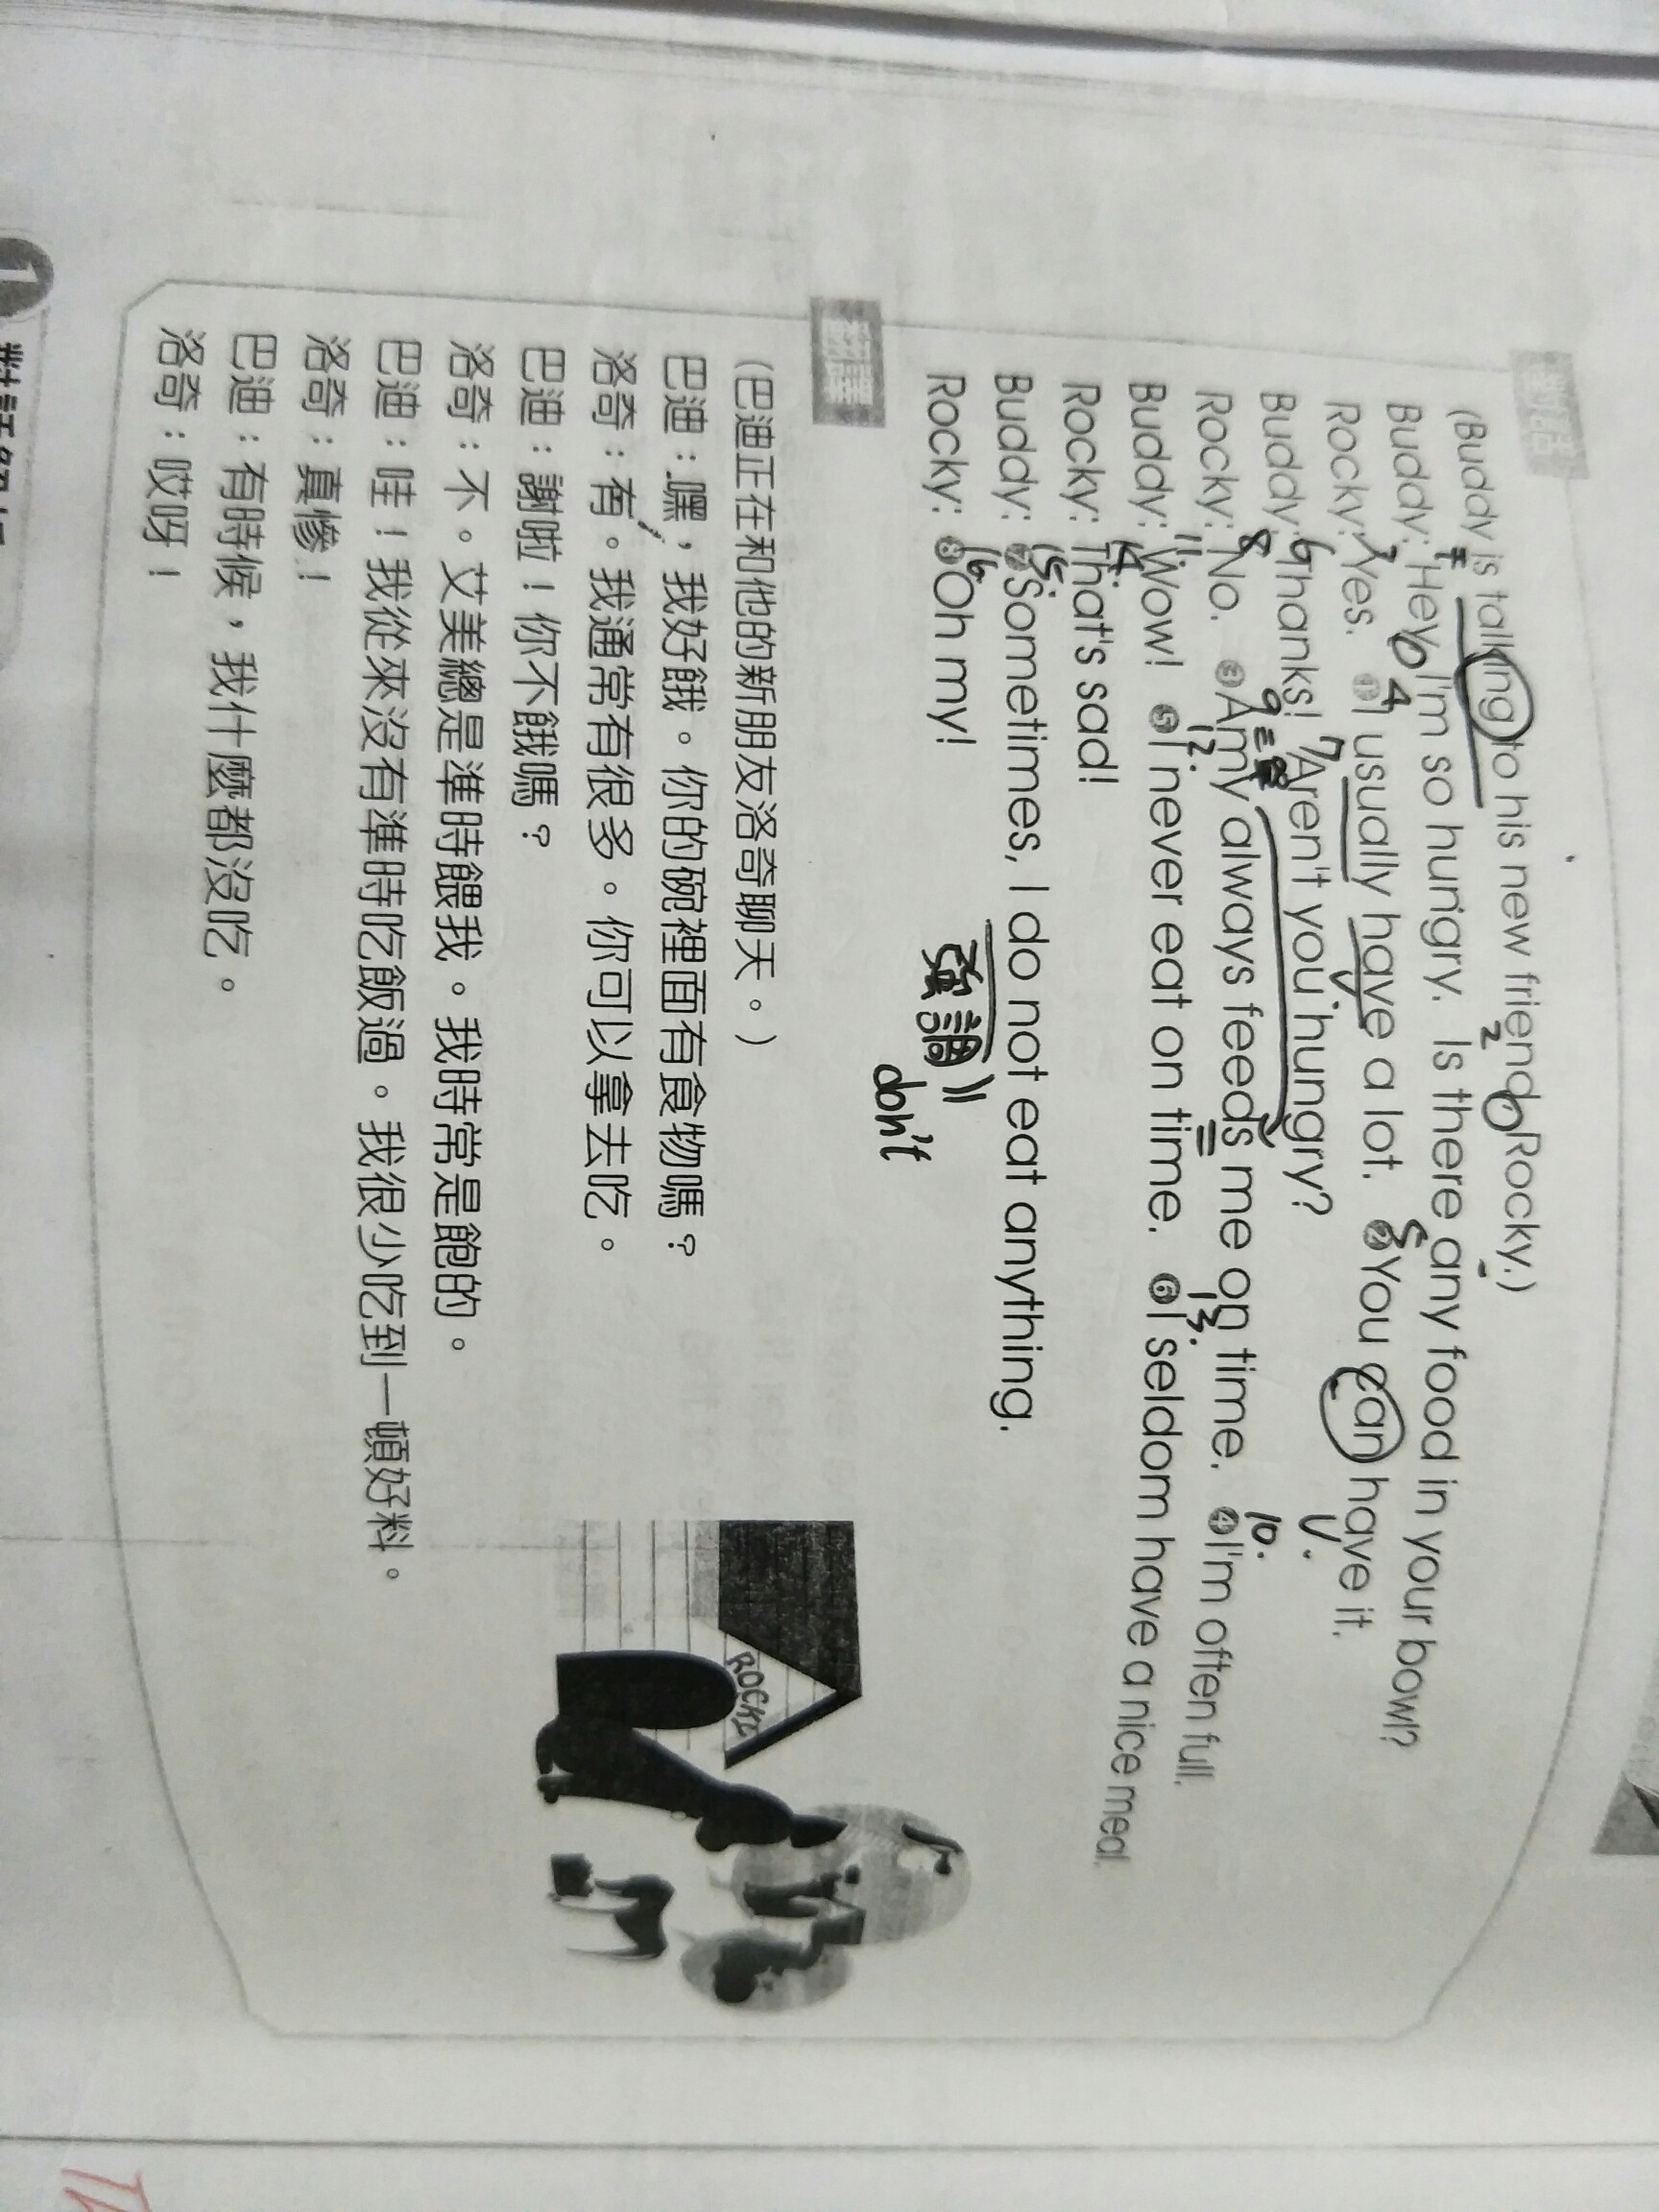 對話
(Buddy is talking to his new friend Rocky.)
Buddy: Hey, I'm so hungry. Is there any food in your bowl?
Rocky: Yes. ❶I usually have a lot. ❷You can have it.
Buddy: Thanks! Aren't you hungry?
Rocky: No. ❸Amy always feeds me on time. ❹I'm often full.
Buddy: Wow! ❺I never eat on time. ❻I seldom have a nice meal.
Rocky: That's sad!
Buddy: ❼Sometimes, I do not eat anything.
Rocky: ❽Oh my!
強調
don't
翻譯
(巴迪正在和他的新朋友洛奇聊天。)
巴迪：嘿，我好餓。你的碗裡面有食物嗎？
洛奇：有。我通常有很多。你可以拿去吃。
巴迪：謝啦！你不餓嗎？
洛奇：不。艾美總是準時餵我。我時常是飽的。
巴迪：哇！我從來沒有準時吃飯過。我很少吃到一頓好料。
洛奇：真慘！
巴迪：有時候，我什麼都沒吃。
洛奇：哎呀！
ROCKY
1